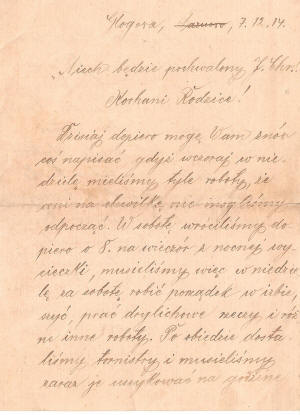 Hogera, 7.12.14.
Niech będzie pochwalony J. Chr.!
Kochani Rodzice!
Dzisiaj dopiero mogę Wam znów
coś napisać gdyż wczoraj w nie-
dzielę mieliśmy tyle roboty, że
ani na chwilkę nie mogliśmy
odpocząć. W sobotę wróciliśmy do-
piero o 8. na wieczór z nocnej wy-
cieczki, musieliśmy więc w niedzie-
lę za sobotę robić porządek w izbie,
szyć, prać drylichowe rzeczy i róż-
ni inne roboty. Po obiedzie dosta-
liśmy tornistry, i musieliśmy
zaraz je na godzinę